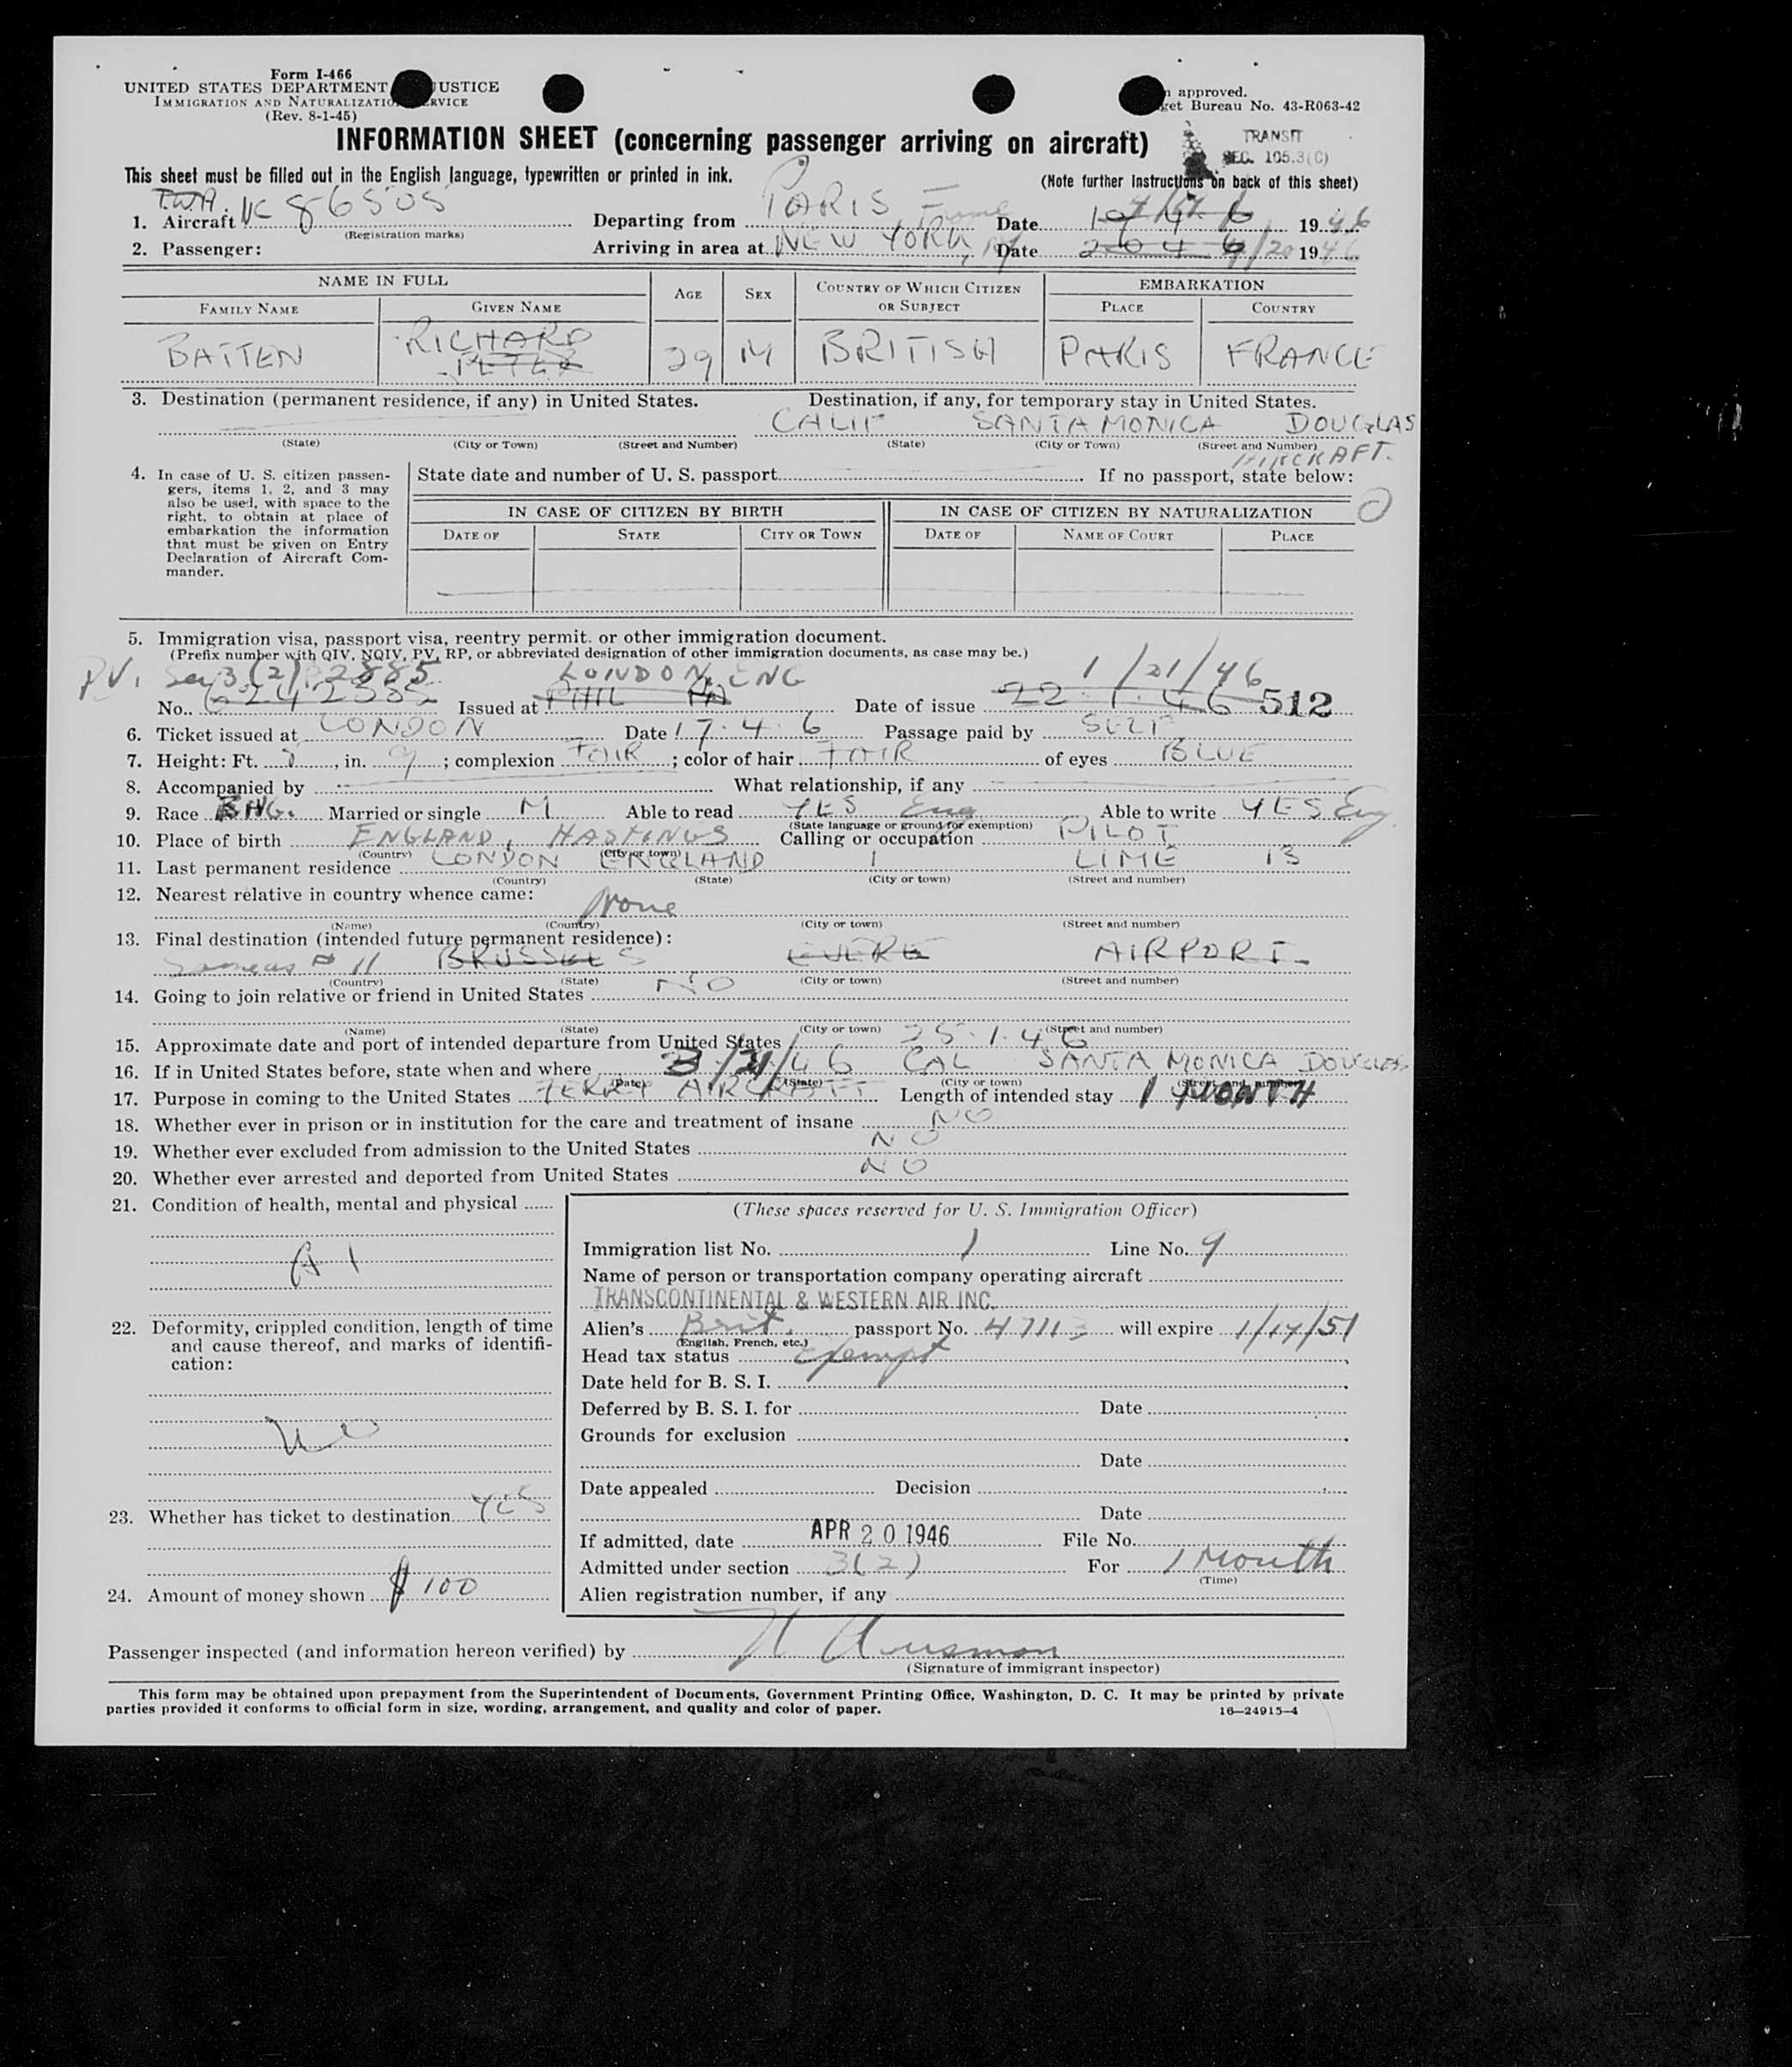 Form I-466
UNITED STATES DEPARTMENT JUSTICE
IMMIGRATION AND NATURALIZATION SERVICE
(Rev. 8-1-45)
approved.
Bureau No. 43-R063-42
INFORMATION SHEET (concerning passenger arriving on aircraft)
TRANSIT
SEC. 105.3(C)
This sheet must be filled out in the English language, typewritten or printed in ink.
(Note further Instructions on back of this sheet)
1. Aircraft T.W.A. NC 86505 Departing from PARIS, Date 1946
(Registration marks)
2. Passenger: Arriving in area at NEW YORK, NY Date 20 1946
NAME IN FULL AGE SEX COUNTRY OF WHICH CITIZEN OR SUBJECT EMBARKATION
FAMILY NAME GIVEN NAME PLACE COUNTRY
BATTEN RICHARD PETER 29 M BRITISH PARIS FRANCE
3. Destination (permanent residence, if any) in United States. Destination, if any, for temporary stay in United States.
CALIF SANTA MONICA DOUGLAS
(State) (City or Town) (Street and Number) (State) (City or Town) (Street and Number)
AIRCRAFT.
4. In case of U. S. citizen passengers, items 1, 2, and 3 may also be used, with space to the right, to obtain at place of embarkation the information that must be given on Entry Declaration of Aircraft Commander.
State date and number of U. S. passport If no passport, state below:
IN CASE OF CITIZEN BY BIRTH IN CASE OF CITIZEN BY NATURALIZATION
DATE OF STATE CITY OR TOWN DATE OF NAME OF COURT PLACE
5. Immigration visa, passport visa, reentry permit. or other immigration document.
(Prefix number with QIV, NQIV, PV, RP, or abbreviated designation of other immigration documents, as case may be.)
PV. Sec 3(2) 2885 LONDON, ENG 1/21/46
No. Issued at PHIL PA Date of issue 22 1 46 512
6. Ticket issued at LONDON Date 17.4.6 Passage paid by SELF
7. Height: Ft. 5, in. 9; complexion FAIR; color of hair FAIR of eyes BLUE
8. Accompanied by What relationship, if any
9. Race ENG. Married or single M Able to read YES Eng Able to write YES Eng
(State language or ground for exemption)
10. Place of birth ENGLAND, HASTINGS Calling or occupation PILOT
(Country) (City or town)
11. Last permanent residence LONDON ENGLAND 1 LIME 13
(Country) (State) (City or town) (Street and number)
12. Nearest relative in country whence came:
None
(Name) (Country) (City or town) (Street and number)
13. Final destination (intended future permanent residence):
Same as # 11 BRUSSELS EVERE AIRPORT
(Country) (State) (City or town) (Street and number)
14. Going to join relative or friend in United States NO
(Name) (State) (City or town) (Street and number)
15. Approximate date and port of intended departure from United States 25.1.46
16. If in United States before, state when and where CAL SANTA MONICA DOUGLAS
(Date) (State) (City or town) (Street and number)
17. Purpose in coming to the United States FERRY AIRCRAFT Length of intended stay 1 MONTH
18. Whether ever in prison or in institution for the care and treatment of insane NO
19. Whether ever excluded from admission to the United States NO
20. Whether ever arrested and deported from United States NO
21. Condition of health, mental and physical
A 1
22. Deformity, crippled condition, length of time and cause thereof, and marks of identification:
No
23. Whether has ticket to destination YES
24. Amount of money shown $ 100
(These spaces reserved for U. S. Immigration Officer)
Immigration list No. 1 Line No. 9
Name of person or transportation company operating aircraft
TRANSCONTINENTAL & WESTERN AIR INC.
Alien's Brit. passport No. 47113 will expire 1/17/51
(English, French, etc.)
Head tax status Exempt
Date held for B. S. I.
Deferred by B. S. I. for Date
Grounds for exclusion
Date
Date appealed Decision
Date
If admitted, date APR 20 1946 File No.
Admitted under section 3(2) For 1 Month
(Time)
Alien registration number, if any
Passenger inspected (and information hereon verified) by
(Signature of immigrant inspector)
This form may be obtained upon prepayment from the Superintendent of Documents, Government Printing Office, Washington, D. C. It may be printed by private
parties provided it conforms to official form in size, wording, arrangement, and quality and color of paper. 16—24915-4